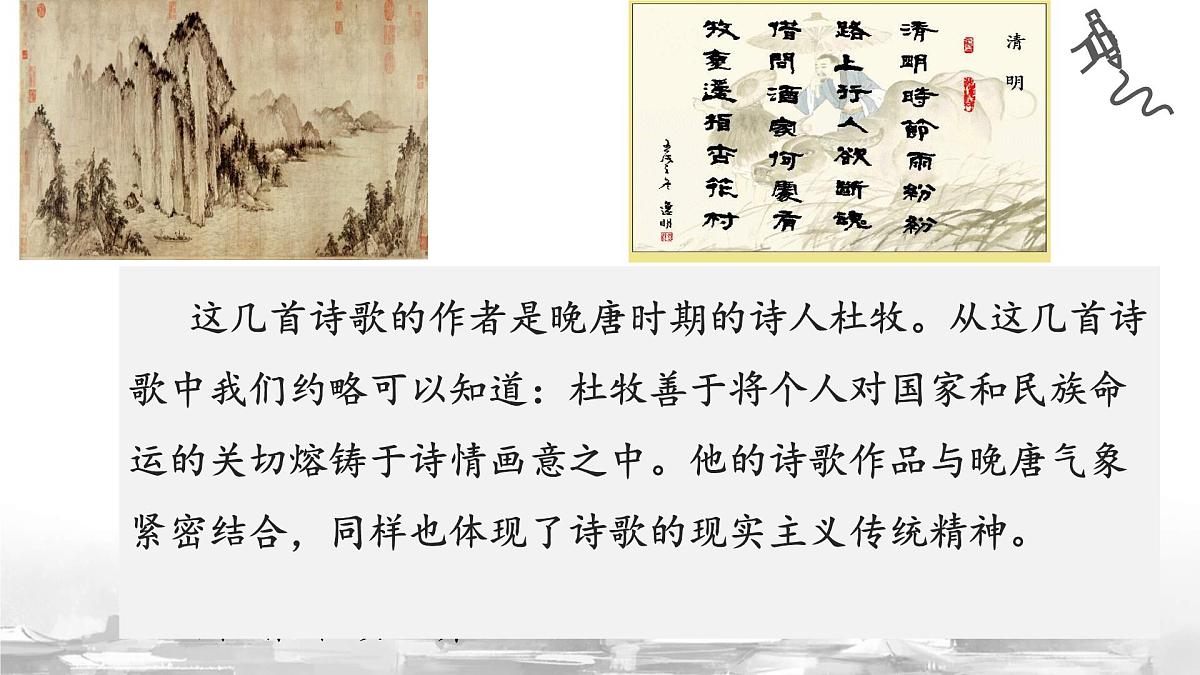 清明
清明時節雨紛紛
路上行人欲斷魂
借問酒家何處有
牧童遥指杏花村
逸明
这几首诗歌的作者是晚唐时期的诗人杜牧。从这几首诗
歌中我们约略可以知道：杜牧善于将个人对国家和民族命
运的关切熔铸于诗情画意之中。他的诗歌作品与晚唐气象
紧密结合，同样也体现了诗歌的现实主义传统精神。